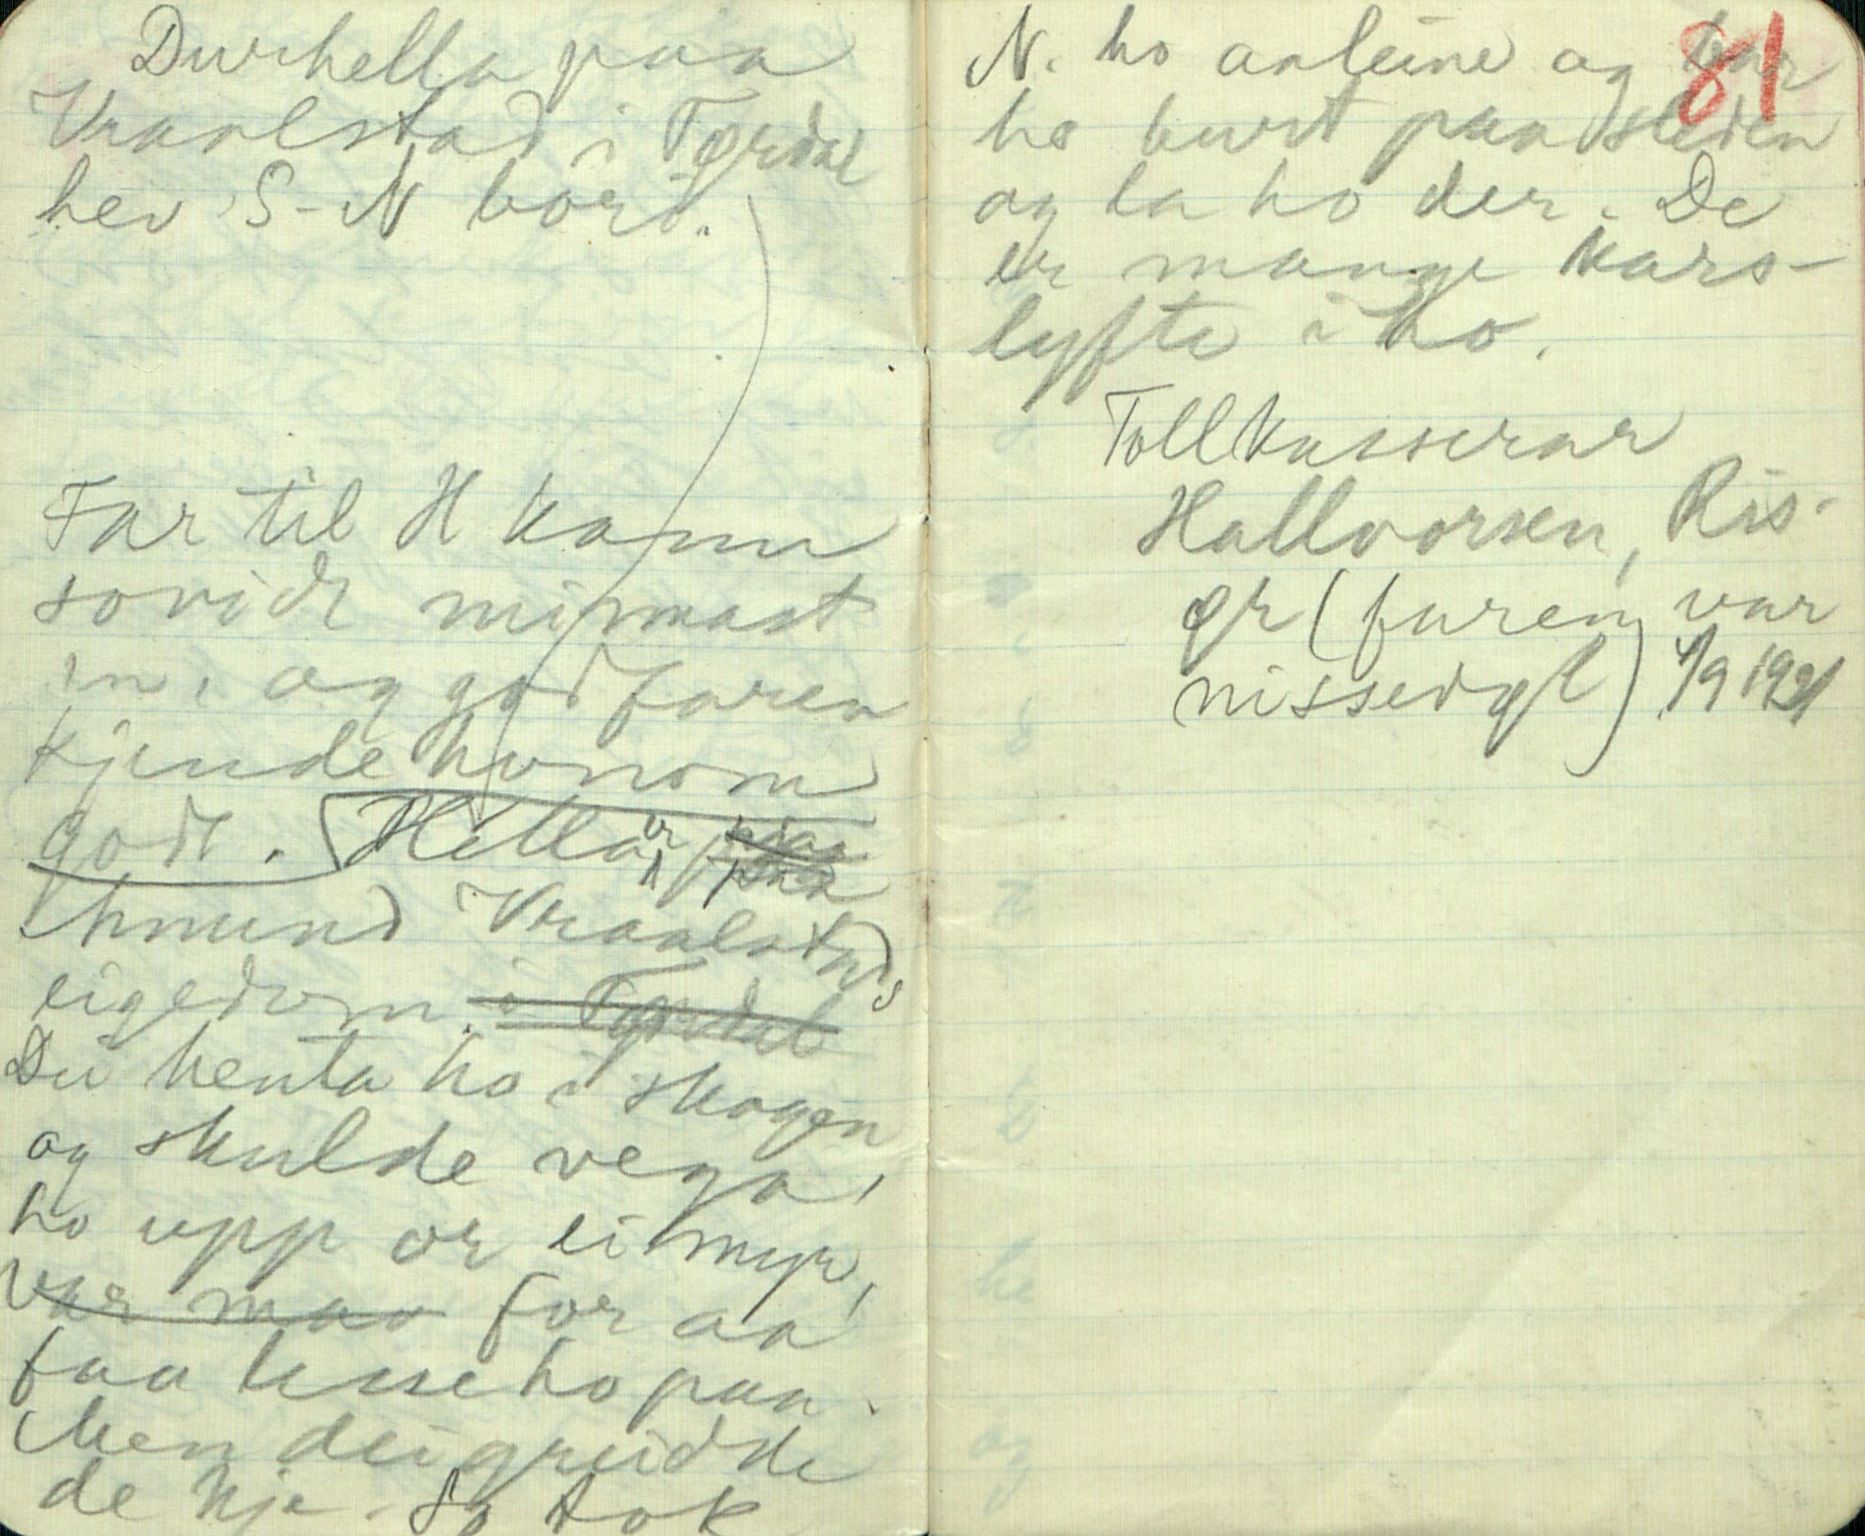 Durhella paa
Vraalstad i Tørdal
hev S-N bori.
Far til H kom
sovidt minnast
en, og godfaren
kjende honom
godt. Hella er paa
Amund Vraalstads
eigedom. i Tørdal
Dei henta ho i skogen
og skulde vega
ho upp or ei myr,
var mao for aa
faa lesse ho paa.
Men dei greidde
de kje. So tok
81
N. ho aaleine og bar
ho burt paa sleden
og la ho der. De
er mange kars-
lyfte i ho.
Tollkasserar
Hallvorsen, Ris-
ør (faren var
nissedøl) 4/9 1921